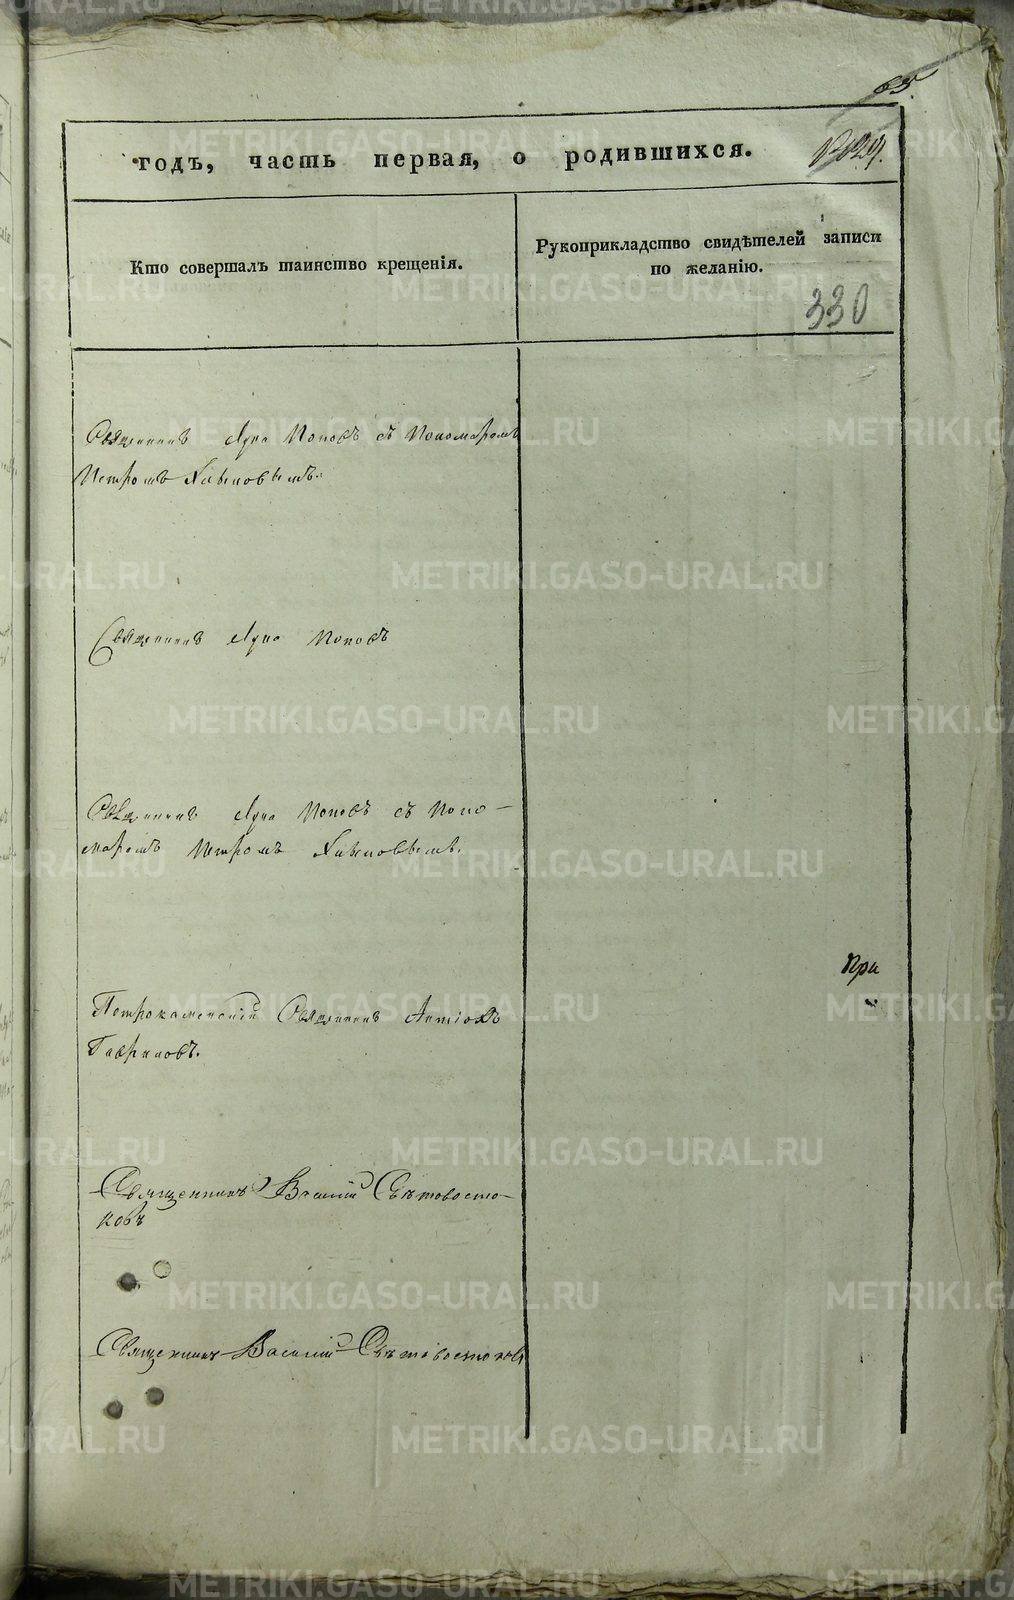 65
годъ, часть первая, о родившихся.
Кто совершалъ таинство крещенія.
Рукоприкладство свидѣтелей записи
по желанію.
330
Священникъ Лука Поповъ съ Пономаремъ
Петромъ
Священникъ Лука Поповъ
Священникъ Лука Поповъ съ Поно-
маремъ Петромъ
При
Петрокаменскій Священникъ
Гавриловъ.
Священникъ Василій Свѣтовосто-
ковъ
Священникъ Василій Свѣтовостоковъ
METRIKI.GASO-URAL.RU